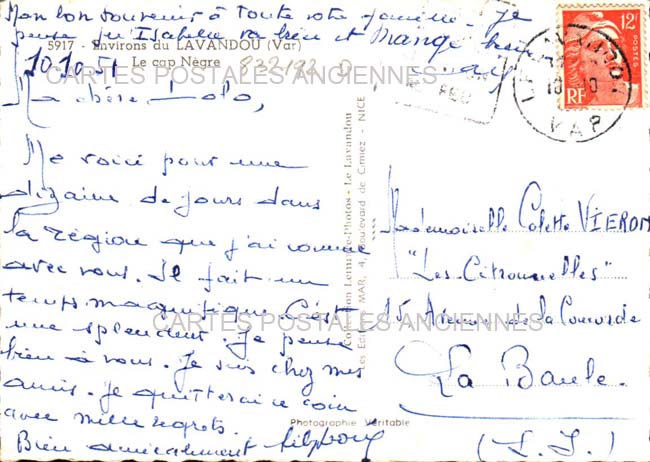 Mon bon souvenir à toute votre famille. Je
pense qu'Isabelle va bien et mange bien
5917 - Environs du LAVANDOU (Var)
Le cap Nègre
832193 D
10 10 51
CARTES POSTALES ANCIENNES
Ma chère Lolo,
Me voici pour une
dizaine de jours dans
la région que j'ai connue
avec vous. Il fait un
temps magnifique. C'est
une splendeur. Je pense
bien à vous. Je suis chez mes
amis. Je quitterai ce coin
avec mille regrets.
Bien amicalement
CARTES POSTALES ANCIENNES
Photographie Véritable
Collection Lemaire-Photos - Le Lavandou
Les Editions MAR, 4, Boulevard de Cimiez - NICE
12F
POSTES
RF
VAR
Mademoiselle Colette VIERON
"Les Citronnelles"
15 Avenue de la Concorde
La Baule.
(L. I.)